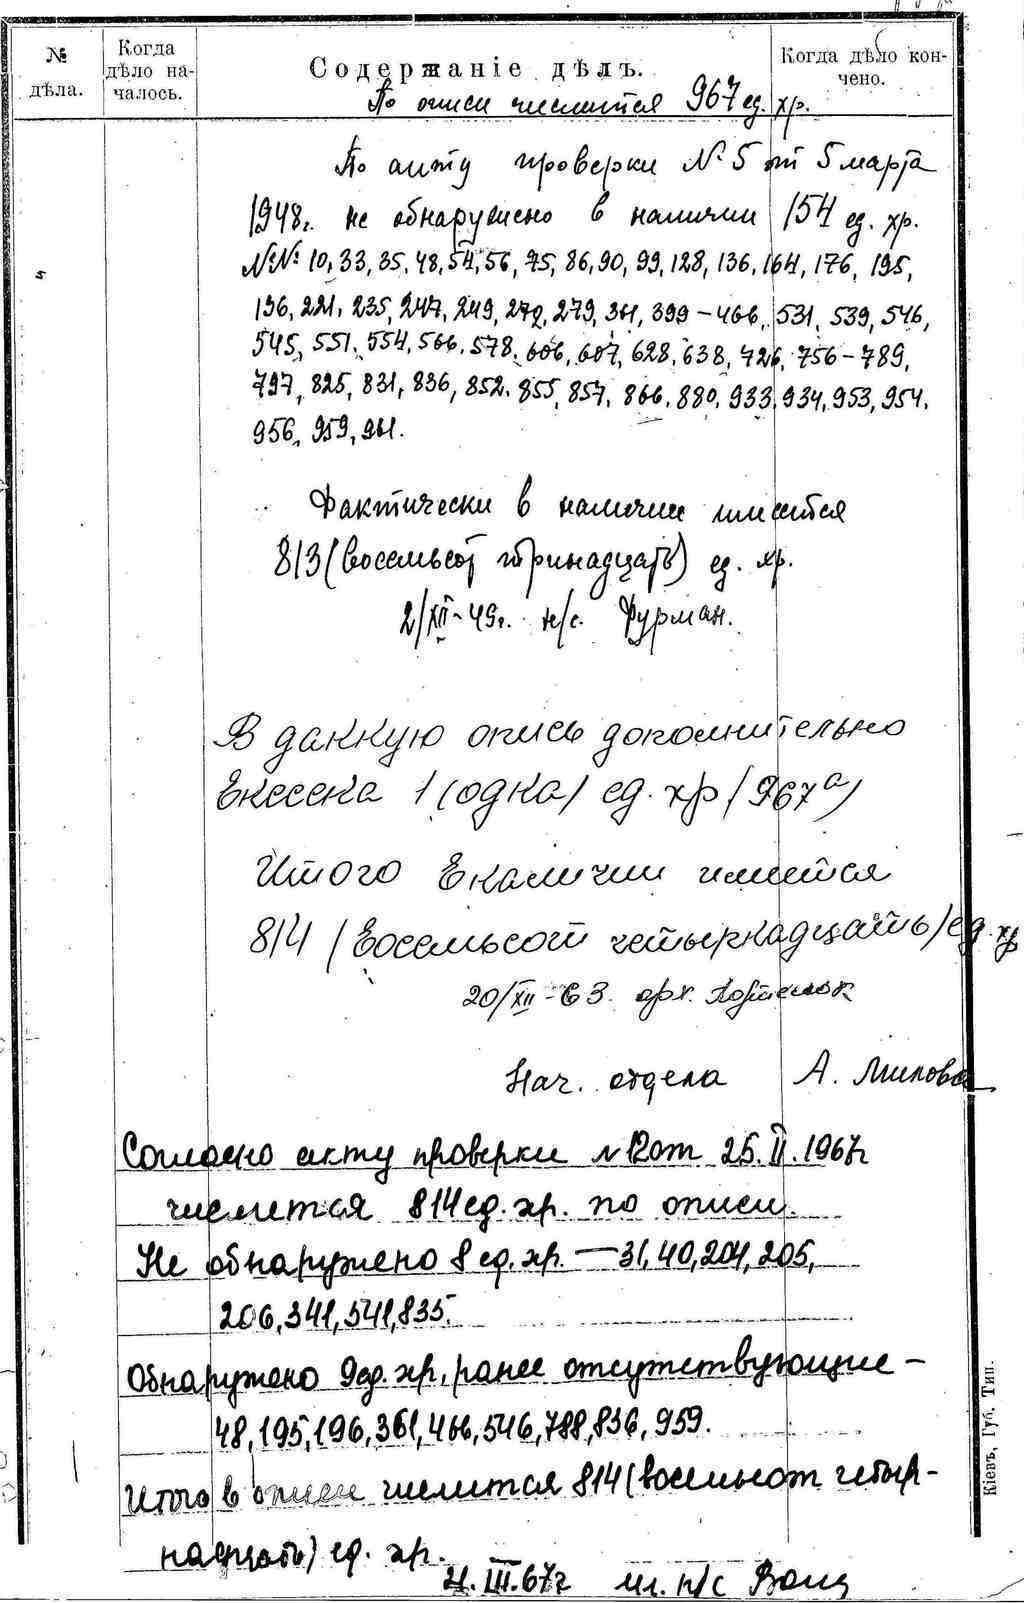 № дѣла.
Когда дѣло началось.
Содержаніе дѣлъ.
Когда дѣло кончено.
По описи числится 967 ед. хр.
По акту проверки № 5 от 5 марта
1948г. не обнаружено в наличии 154 ед. хр.
№№ 10, 33, 35, 48, 54, 56, 75, 86, 90, 99, 128, 136, 164, 176, 195,
196, 221, 235, 247, 249, 272, 279, 361, 399-466, 531, 539, 546,
545, 551, 554, 566, 578, 606, 607, 628, 638, 726, 756-789,
797, 825, 831, 836, 852, 855, 857, 866, 880, 933, 934, 953, 954,
956, 959, 961.
Фактически в наличии имеется
813 (восемьсот тринадцать) ед. хр.
2/XII-49г. н/с. Фурман.
В данную опись дополнительно
внесена 1 (одна) ед. хр (967а)
Итого в наличии имеется
814 (восемьсот четырнадцать) ед. хр
20/XII-63. арх.
Нач. отдела А. Милова
Согласно акту проверки №12 от 25.II.1967г
числится 814 ед. хр. по описи.
Не обнаружено 8 ед. хр. — 31, 40, 204, 205,
206, 341, 541, 835.
Обнаружено 9 ед. хр, ранее отсутствующие -
48, 195, 196, 361, 466, 546, 788, 836, 959.
Итого в описи числится 814 (восемьсот четыр-
надцать) ед. хр.
4.III.67г мл. н/с
Кіевъ, Губ. Тип.